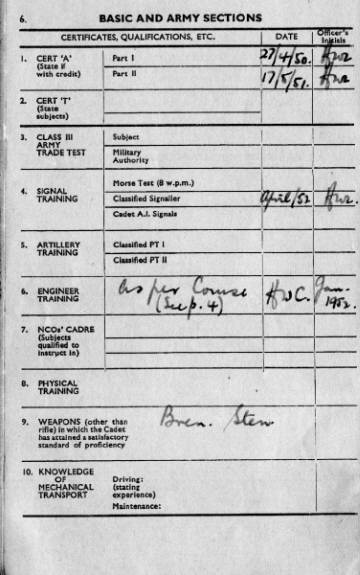 6. BASIC AND ARMY SECTIONS
CERTIFICATES, QUALIFICATIONS, ETC. DATE Officer's Initials
1. CERT 'A' (State if with credit) Part I 27/4/50.
Part II 17/5/51.
2. CERT 'T' (State subjects)
3. CLASS III ARMY TRADE TEST Subject
Military Authority
4. SIGNAL TRAINING Morse Test (8 w.p.m.)
Classified Signaller April/52
Cadet A.I. Signals
5. ARTILLERY TRAINING Classified PT I
Classified PT II
6. ENGINEER TRAINING as per Course (See p. 4) HWC. Jan. 1952.
7. NCOs' CADRE (Subjects qualified to instruct in)
8. PHYSICAL TRAINING
9. WEAPONS (other than rifle) in which the Cadet has attained a satisfactory standard of proficiency Bren. Sten
10. KNOWLEDGE OF MECHANICAL TRANSPORT Driving: (stating experience)
Maintenance: